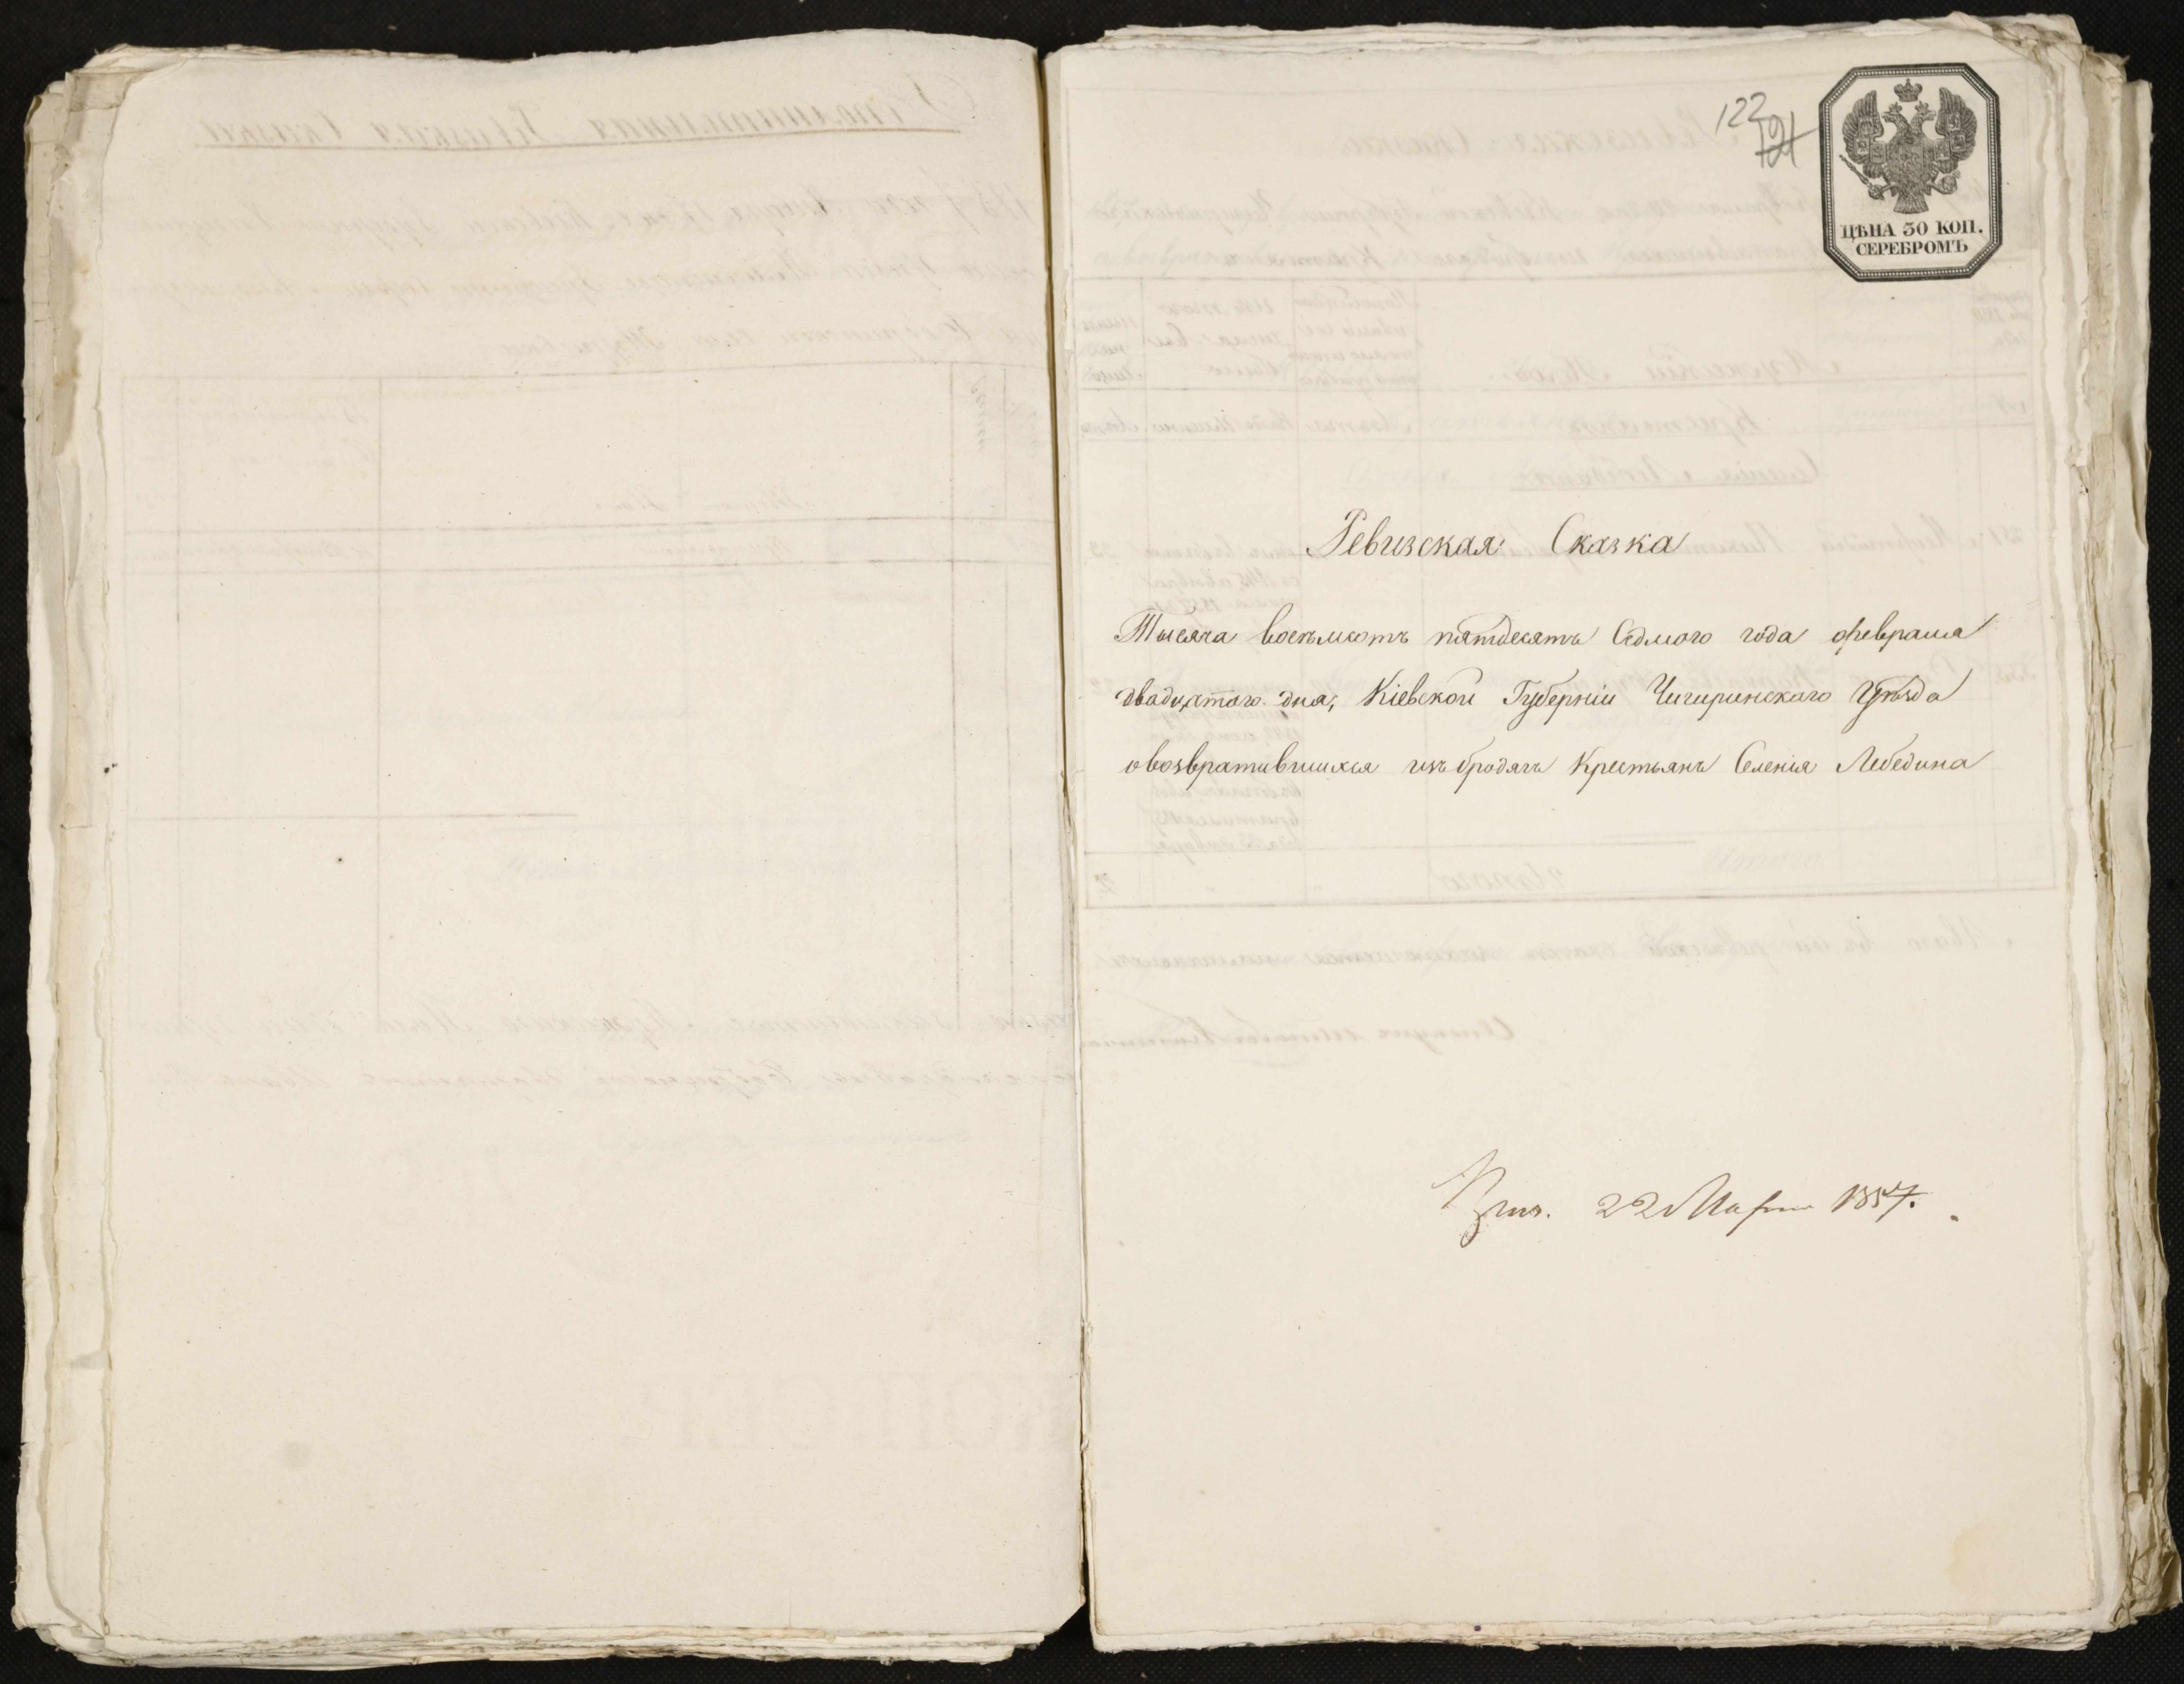 122
121
ЦѢНА 30 КОП.
СЕРЕБРОМЪ
Ревизская Сказка
Тысяча восемьсотъ пятдесятъ Седмого года февраля
двадцатого дня, Кіевской Губерніи Чигиринскаго Уѣзда
овозвратившихся изъ бродягъ Крестьянъ Селенія Лебедина
22 Марта 1857.